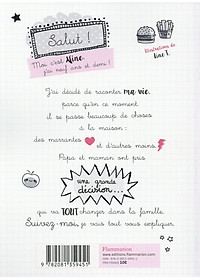 Salut !
Moi c'est Aline,
j'ai neuf ans et demi !
Illustrations de
Line T.
J'ai décidé de raconter ma vie,
parce qu'en ce moment
il se passe beaucoup de choses
à la maison :
des marrantes et d'autres moins.
Papa et maman ont pris
une grande
décision...
qui va TOUT changer dans la famille.
Suivez-moi, je vais tout vous expliquer.
Flammarion
www.editions.flammarion.com
10€
9 782081 359451